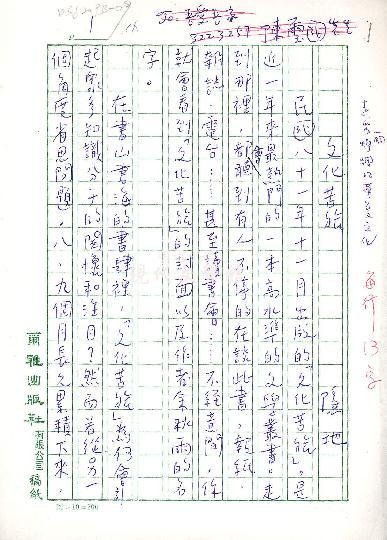 文化苦旅
隱地
民國八十一年十一月出版的「文化苦旅」，是
近一年來最熱門的一本高水準的文學叢書。走
到那裡，都會聽到有人不停的在談此書，報紙
雜誌、電台……甚至讀書會……不經意間，你
就會看到「文化苦旅」的封面以及作者余秋雨的名
字。
在書山書海的書肆裡，「文化苦旅」為何會引
起眾多知識分子的關懷和注目？然而若從另一
個角度省思問題，八、九個月長久累積下來，
爾雅出版社有限公司稿紙
20×10=200
3223257
每行13字
1